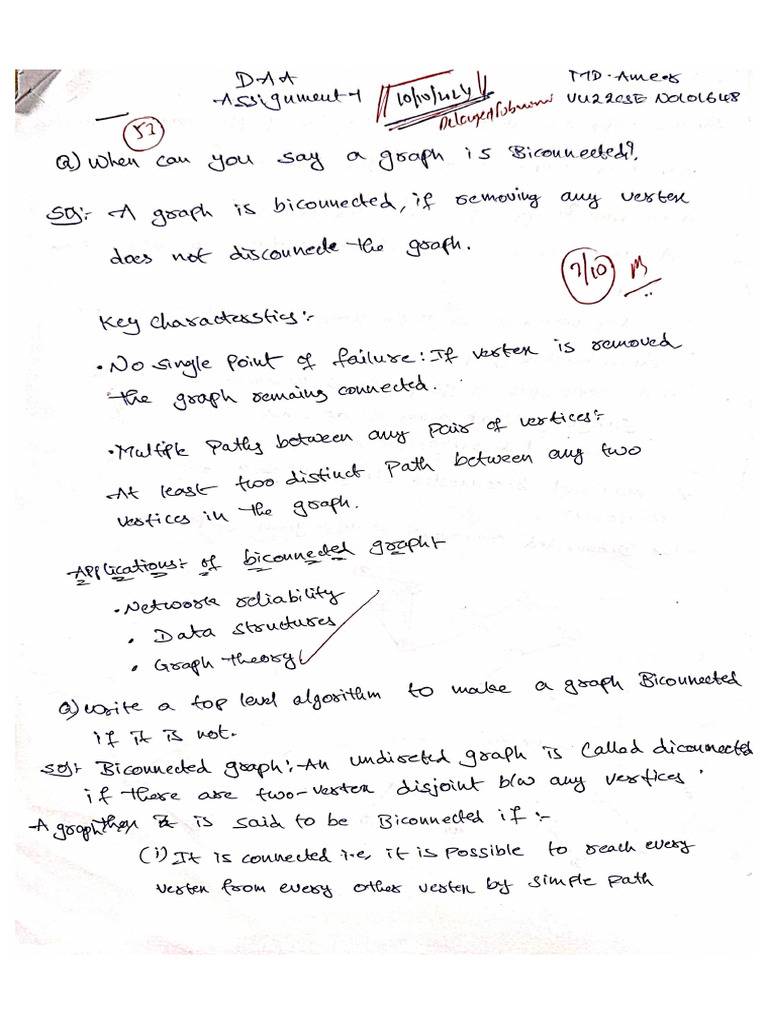 DAA
Assignment-1
10/10/2024
Delayed Submission
MD. Ameer
VU22CSEN0101648
52
Q) When can you say a graph is Biconnected?
Sol:- A graph is biconnected, if removing any vertex
does not disconnecte the graph.
7/10
Key characterstics:-
• No single point of failure: If vertex is removed
the graph remains connected.
• Multiple Paths between any pair of vertices:-
At least two distinct Path between any two
vertices in the graph.
Applications: of biconnected graph:-
• Network reliability
• Data structures
• Graph theory
Q) Write a top level algorithm to make a graph Biconnected
if it is not.
Sol:- Biconnected graph:- An undirected graph is Called diconnected
if there are two-vertex disjoint b/w any vertices.
A graph then is said to be Biconnected if :-
(i) It is connected i.e, it is possible to reach every
vertex from every other vertex by simple path